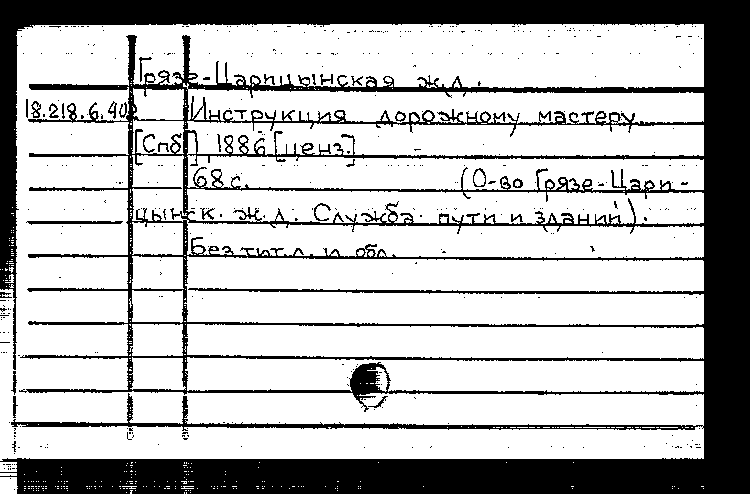 Грязе-Царицынская ж.д.
18.218.6.402 Инструкция дорожному мастеру
[Спб], 1886 [ценз.]
68 с. (О-во Грязе-Цари-
цынск. ж.д. Служба пути и зданий).
Без тит. л. и обл.